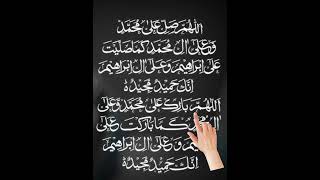 اللهم صل على محمد
وعلى ال محمد كما صليت
على ابراهيم وعلى ال ابراهيم
انك حميد مجيد
اللهم بارك على محمد وعلى
ال محمد كما باركت على
وعلى ال ابراهيم
انك حميد مجيد